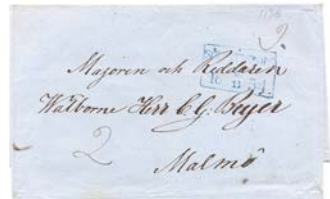 Majoren och Riddaren
Wälborne Herr C. G. Beyer
2
Malmö